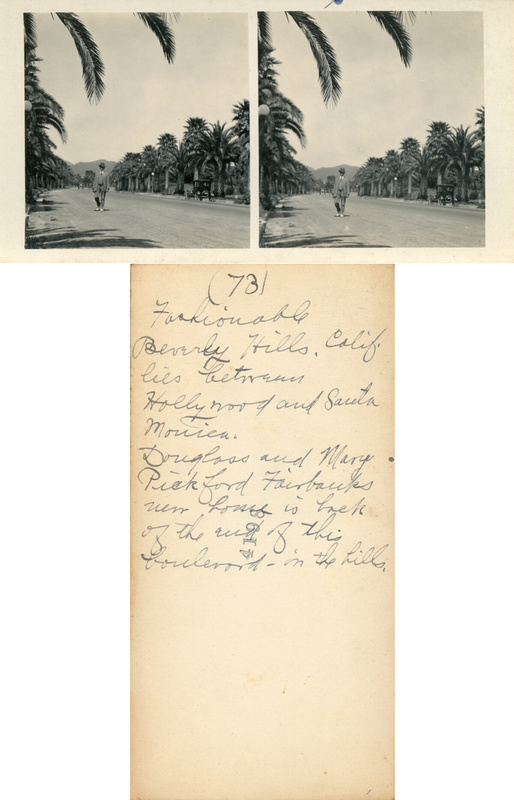 (73)
Fashionable
Beverly Hills. Calif.
lies between
Hollywood and Santa
Monica.
Douglass and Mary
Pickford Fairbanks
new home is back
of the end of this
boulevard - in the hills.